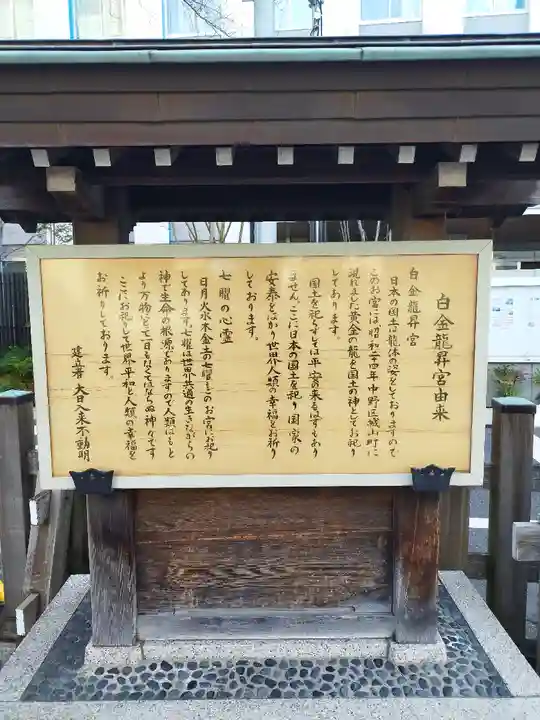 白金龍昇宮由来
白金龍昇宮
日本の国土は龍体の姿をしておりますので
このお宮には、昭和二十四年中野区城山町に
現れました黄金の龍を国土の神としてお祀り
してあります。
国土を祀らずしては平安の来るはずもあり
ません。ここに日本の国土を祀り国家の
安泰をはかり世界人類の幸福をお祈り
しております。
七曜の心霊
日月火水木金土の七曜もこのお宮にお祀り
してあります。七曜は世界共通の生きながらの
神で生命の根源でありますので人類はもと
より万物にとって一日もなくてはならぬ神々です
ここにお祀りして世界平和と人類の幸福を
お祈りしております。
建立者 大日入来不動明